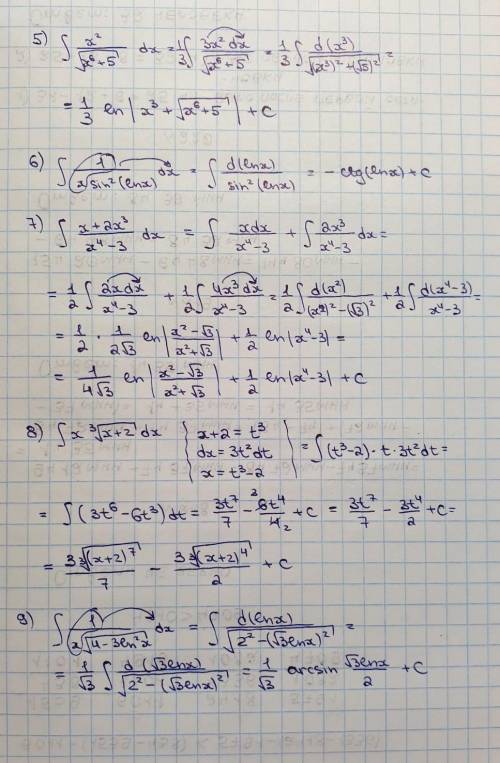 5) ∫ x²/√(x⁶+5) dx = 1/3 ∫ 3x² dx/√(x⁶+5) = 1/3 ∫ d(x³)/√((x³)²+(√5)²) =
= 1/3 ln|x³ + √(x⁶+5)| + C
6) ∫ 1/(x sin²(lnx)) dx = ∫ d(lnx)/sin²(lnx) = - ctg(lnx) + C
7) ∫ (x+2x³)/(x⁴-3) dx = ∫ xdx/(x⁴-3) + ∫ 2x³/(x⁴-3) dx =
= 1/2 ∫ 2xdx/(x⁴-3) + 1/2 ∫ 4x³dx/(x⁴-3) = 1/2 ∫ d(x²)/((x²)²-(√3)²) + 1/2 ∫ d(x⁴-3)/(x⁴-3) =
= 1/2 · 1/(2√3) ln|(x²-√3)/(x²+√3)| + 1/2 ln|x⁴-3| =
= 1/(4√3) ln|(x²-√3)/(x²+√3)| + 1/2 ln|x⁴-3| + C
8) ∫ x ³√(x+2) dx { x+2 = t³ | = ∫(t³-2)·t·3t²dt =
dx = 3t²dt
x = t³-2
= ∫(3t⁶-6t³)dt = 3t⁷/7 - ³6t⁴/4₂ + C = 3t⁷/7 - 3t⁴/2 + C =
= 3 ³√((x+2)⁷)/7 - 3 ³√((x+2)⁴)/2 + C
9) ∫ 1/(x√(4-3ln²x)) dx = ∫ d(lnx)/√(2²-(√3lnx)²) =
= 1/√3 ∫ d(√3lnx)/√(2²-(√3lnx)²) = 1/√3 arcsin √3lnx/2 + C